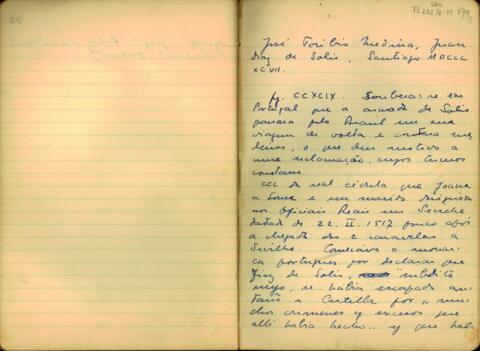 José Toribio Medina, Juan
Diaz de Solis, Santiago MDCCC
XCVII.
pg. CCXCIX. Soubera-se em
Portugal que a armada de Solis
passara pelo Brasil em sua
viagem de volta e cortara ma-
deiras, o que deu motivo a
uma reclamação, cujos termos
constam
da real cédula que Joana
a Louca e seu marido dirigiram
aos Oficiais Reais em Sevilha
datada de 22. II. 1517 pouco após
a chegada das 2 caravelas a
Sevilha. Começava o monar-
ca português por declarar que
Diaz de Solis, subdito
suyo, se habia escapado an-
taño a Castilla por "mu-
chos crimenes y excesos que
alli habia hecho.. y que